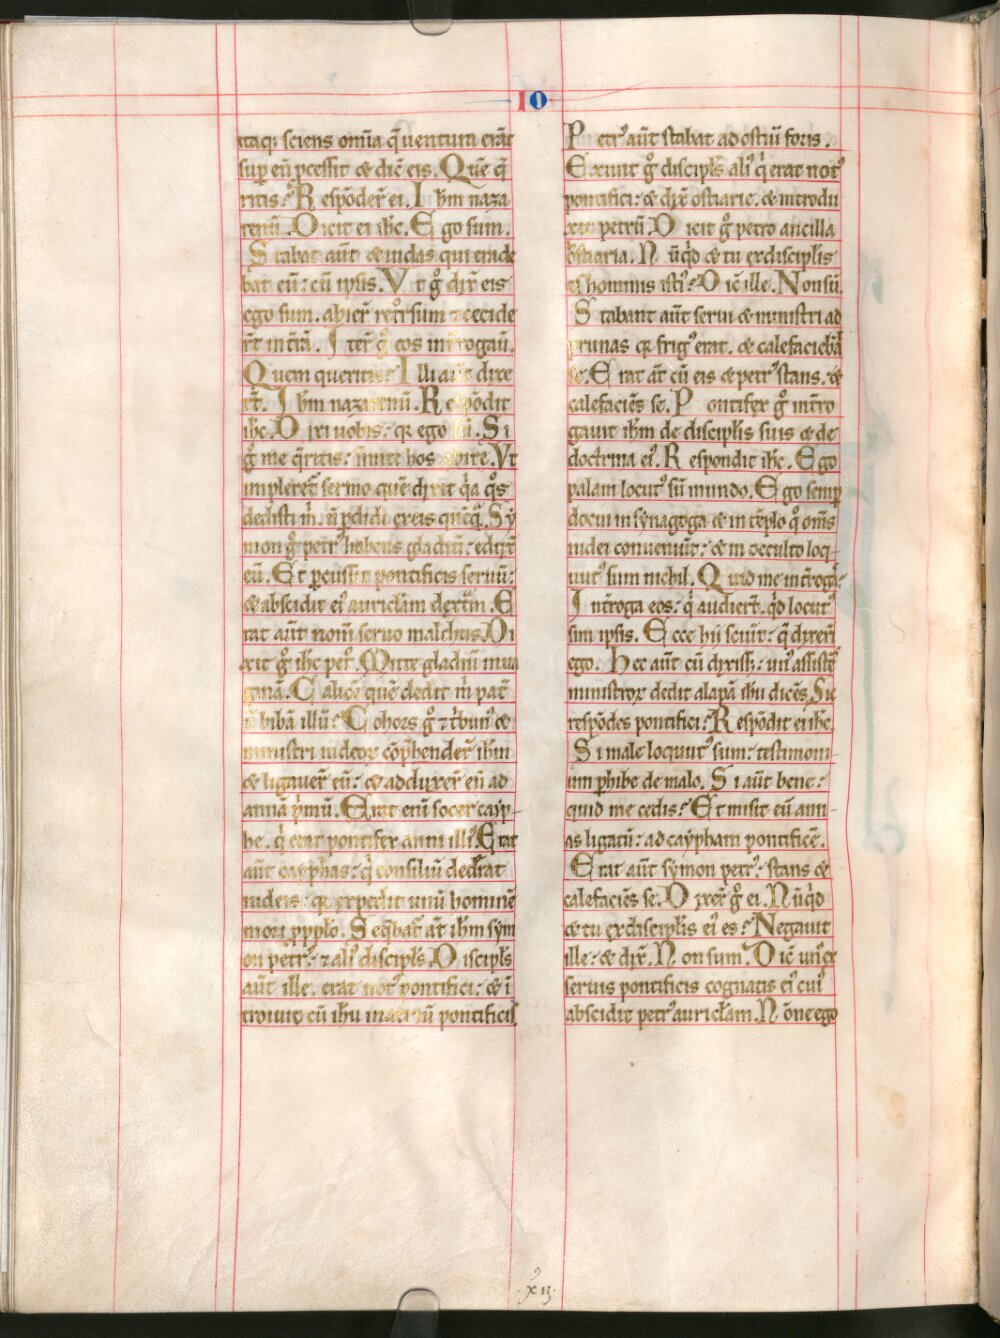 IO
itaq; sciens om̄ia q̄ ventura erāt
sup eū p̄cessit & dic̄ eis. Quē q̄
ritis? Respōder̄ ei. Ihm̄ naza
renū. Dicit ei ihc̄. Ego sum.
Stabat aūt & iudas qui trade
bat eū: cū ipsis. Vt gͦ dix̄ eis
ego sum. abier̄ retr̄sum ⁊ cecide
rt̄ in t̄rā. Iter̄ gͦ eos int̄rogaū.
Quem queritis? Illi aūt dixe
rt̄. Ihm̄ nazarenū. Respōdit
ihc̄. Dixi vobis: qꝛ ego sū. Si
gͦ me q̄ritis: sinite hos abire. Vt
impleret̄ sermo quē dixit qͥa qͦs
dedisti m̄. n̄ p̄didi exeis quēqͣ. Sy
mon gͦ petrꝰ habens gladiū: eduxͭ
eū. Et p̄cussit pontificis seruū:
& abscidit eiꝰ auricłam dext̄m. E
rat aūt nom̄ seruo malchus. Di
xit gͦ ihc̄ petͦ. Mitte gladiū inua
ginā. Calicē quē dedit m̄ pat̄
n̄ bibā illū? Cohors gͦ ⁊ t̄bunꝰ &
ministri iudeoꝝ cōp̄hender̄ ihm̄
& ligauer̄ eū: & adduxer̄ eū ad
annā pͥmū. Erat enī socer cayp-
he. qͥ erat pontifex anni illiꝰ. Erat
aūt cayphas: qͥ consiliū dederat
iudeis: qꝛ expedit unū hominē
mori ꝓpp̄lo. Seq̄bat̄ āt ihm̄ sym
on petrꝰ: ⁊ aliꝰ discipłs. Discipłs
aūt ille. erat notꝰ pontifici: & ī
troiuit cū ihū inatriū pontificis.
Petrꝰ aūt stabat ad ostiū foris.
Exiuit gͦ discipłs aliꝰ qͥ erat notꝰ
pontifici: & dix̄ ostiarie. & introdu
xit petrū. Dicit gͦ petro ancilla
ostiaria. Nūqͥd & tu exdiscipłis
es hominis istiꝰ? Dic̄ ille. Non sū.
Stabant aūt serui & ministri ad
prunas qꝛ frigꝰ erat. & calefaciebāt
se. Erat āt cū eis & petrꝰ stans. &
calefaciēs se. Pontifex gͦ int̄ro
gauit ihm̄ de discipłis suis & de
doctrina eiꝰ. Respondit ihc̄. Ego
palam locutꝰ sū mundo. Ego semp̄
docui in synagoga & in tēplo qͦ om̄s
iudei conueniūt: & in occulto loq-
uutꝰ sum nichil. Quid me int̄rogͣ?
Int̄roga eos: qͥ audiert̄. qͥd locutꝰ
sim ipsis. Ecce hii sciūt: q̄ dixerī
ego. Hec aūt cū dixiss;: unꝰ assistēs
ministroꝝ dedit alapā ihū dicēs. Sic
respōdes pontifici? Respōdit ei ihc̄.
Si male loquutꝰ sum: testimoni-
um p̄hibe de malo. Si aūt bene:
quid me cedis? Et misit eū ann-
as ligatū: ad caypham pontificē.
Erat aūt symon petrꝰ: stans &
calefaciēs se. Dixer̄t gͦ ei. Nūqͥd
& tu exdiscipłis eiꝰ es? Negauit
ille: & dix̄. Non sum. Dic̄ unꝰ ex
seruis pontificis cognatꝰ eiꝰ cuiꝰ
abscidit petrꝰ auricłam. Nōne ego
xij.